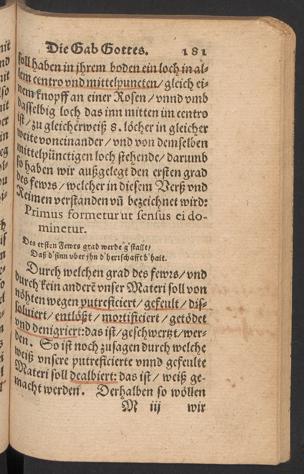 Die Gab Gottes. 181
soll haben in jhrem boden ein loch in al-
lem centro vnd mittelpuncten / gleich ei-
nem knopff an einer Rosen / vnnd vmb
dasselbig loch das inn mitten im centro
ist / zu gleicherweiß 8. löcher in gleicher
weite voneinander / vnd von demselben
mittelpünctigen loch stehende / darumb
so haben wir außgelegt den ersten grad
des fewrs / welcher in diesem Verß vnd
Reimen verstanden vñ bezeichnet wird:
Primus formetur ut sensus ei do-
minetur.
Des ersten Fewrs grad werde g'stalt /
Daß d'sinn vber jhn d'herrschafft b'halt.
Durch welchen grad des fewrs / vnd
durch kein anderẽ vnser Materi soll von
nöhten wegen putreficiert / gefeult / dis-
soluiert / entlößt / mortificiert / getödet
vnd denigriert: das ist / geschwertzt / wer-
den. So ist noch zusagen durch welche
weiß vnsere putreficierte vnnd gefeulte
Materi soll dealbiert: das ist / weiß ge-
macht werden. Derhalben so wöllen
M iij wir